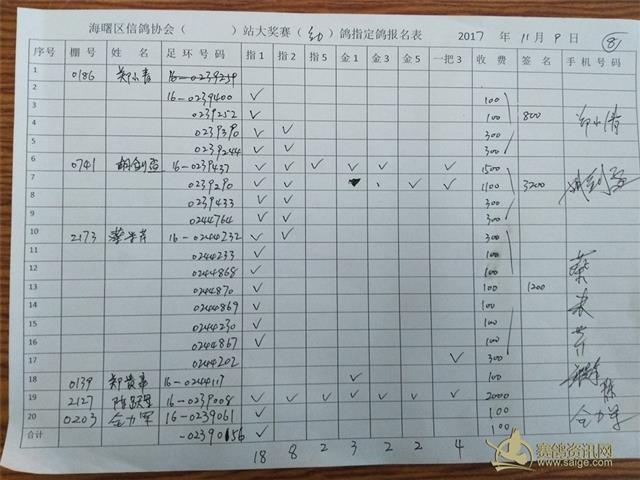 海曙区信鸽协会（ ）站大奖赛（幼）鸽指定鸽报名表 2017 年 11 月 9 日 ⑧
序号 棚号 姓名 足环号码 指1 指2 指5 金1 金2 金5 一把3 收费 签名 手机号码
1 0186 郑小青 16-0239259
2 16-0239400 ✓ 100
3 0239252 ✓ 100 800 郑小清
4 0239390 ✓ ✓ 300
5 0239244 ✓ ✓ 300
6 0741 16-0239437 ✓ ✓ ✓ ✓ ✓ ✓ 1500
7 0239290 ✓ ✓ ✓ ✓ 1100 3200
8 0239433 ✓ ✓ 300
9 0244764 ✓ ✓ 300
10 2173 16-0244232 ✓ ✓ 300
11 0244233 ✓ 100
12 0244868 ✓ 100
13 0244870 ✓ 100 1200
14 0244869 ✓ 100
15 0244230 ✓ 100
16 0244867 ✓ 100
17 0244202 ✓ 300
18 0139 16-0244117 ✓ 100
19 2127 16-0239008 ✓ ✓ ✓ ✓ ✓ ✓ ✓ 2000
20 0203 全力军 16-0239061 ✓ 100 全力军
合计 -0239056 ✓ 100
18 8 2 3 2 2 4
赛鸽资讯网
www.saige.com